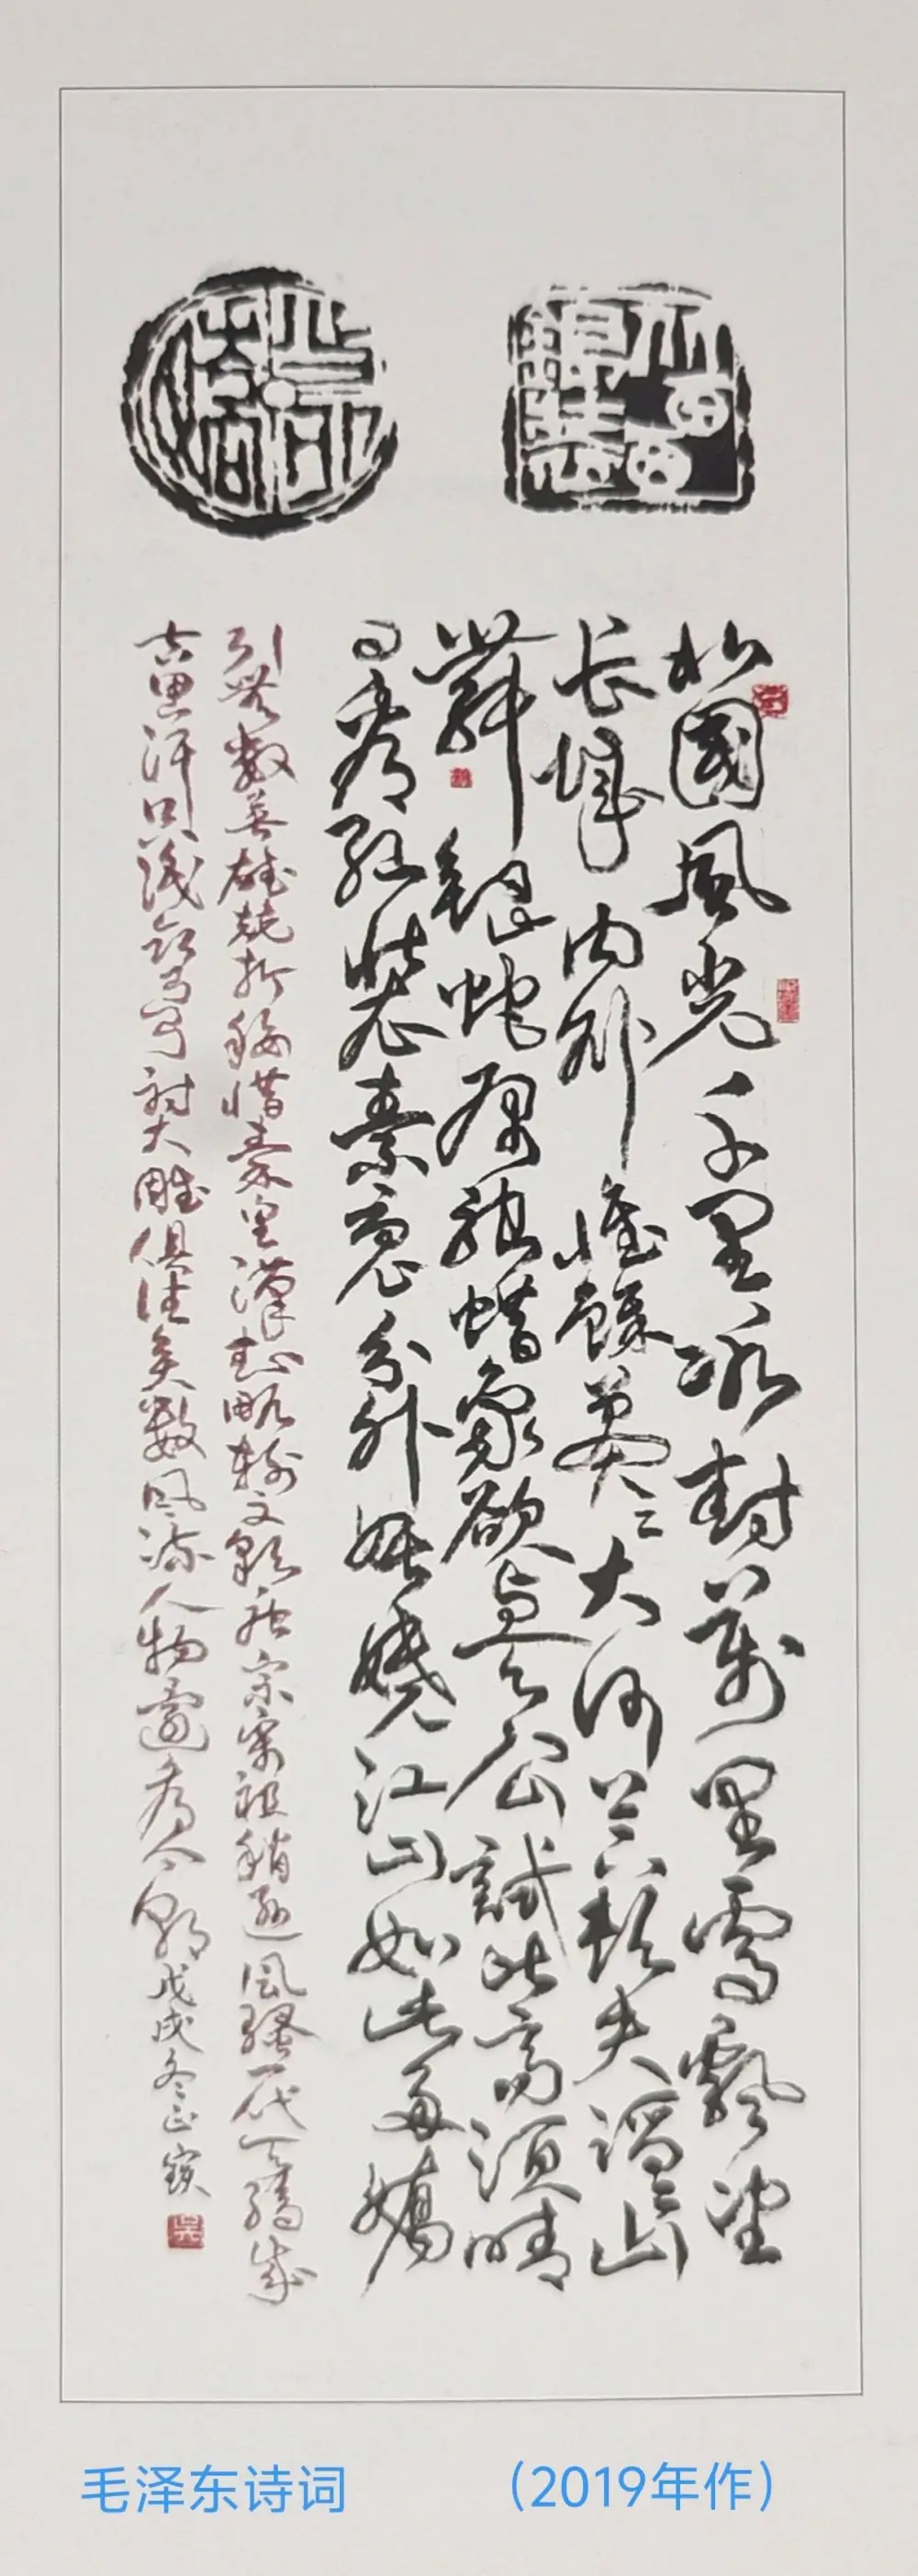 北國風光千里冰封萬里雪飄望
長城內外惟餘莽〻大河上下頓失滔〻山
舞銀蛇原馳蠟象欲與天公試比高須晴
日看紅裝素裹分外妖嬈江山如此多嬌
引無數英雄競折腰惜秦皇漢武略輸文彩唐宗宋祖稍遜風騷一代天驕成
吉思汗只識彎弓射大雕俱往矣數風流人物還看今朝戊戌冬正
毛泽东诗词 （2019年作）